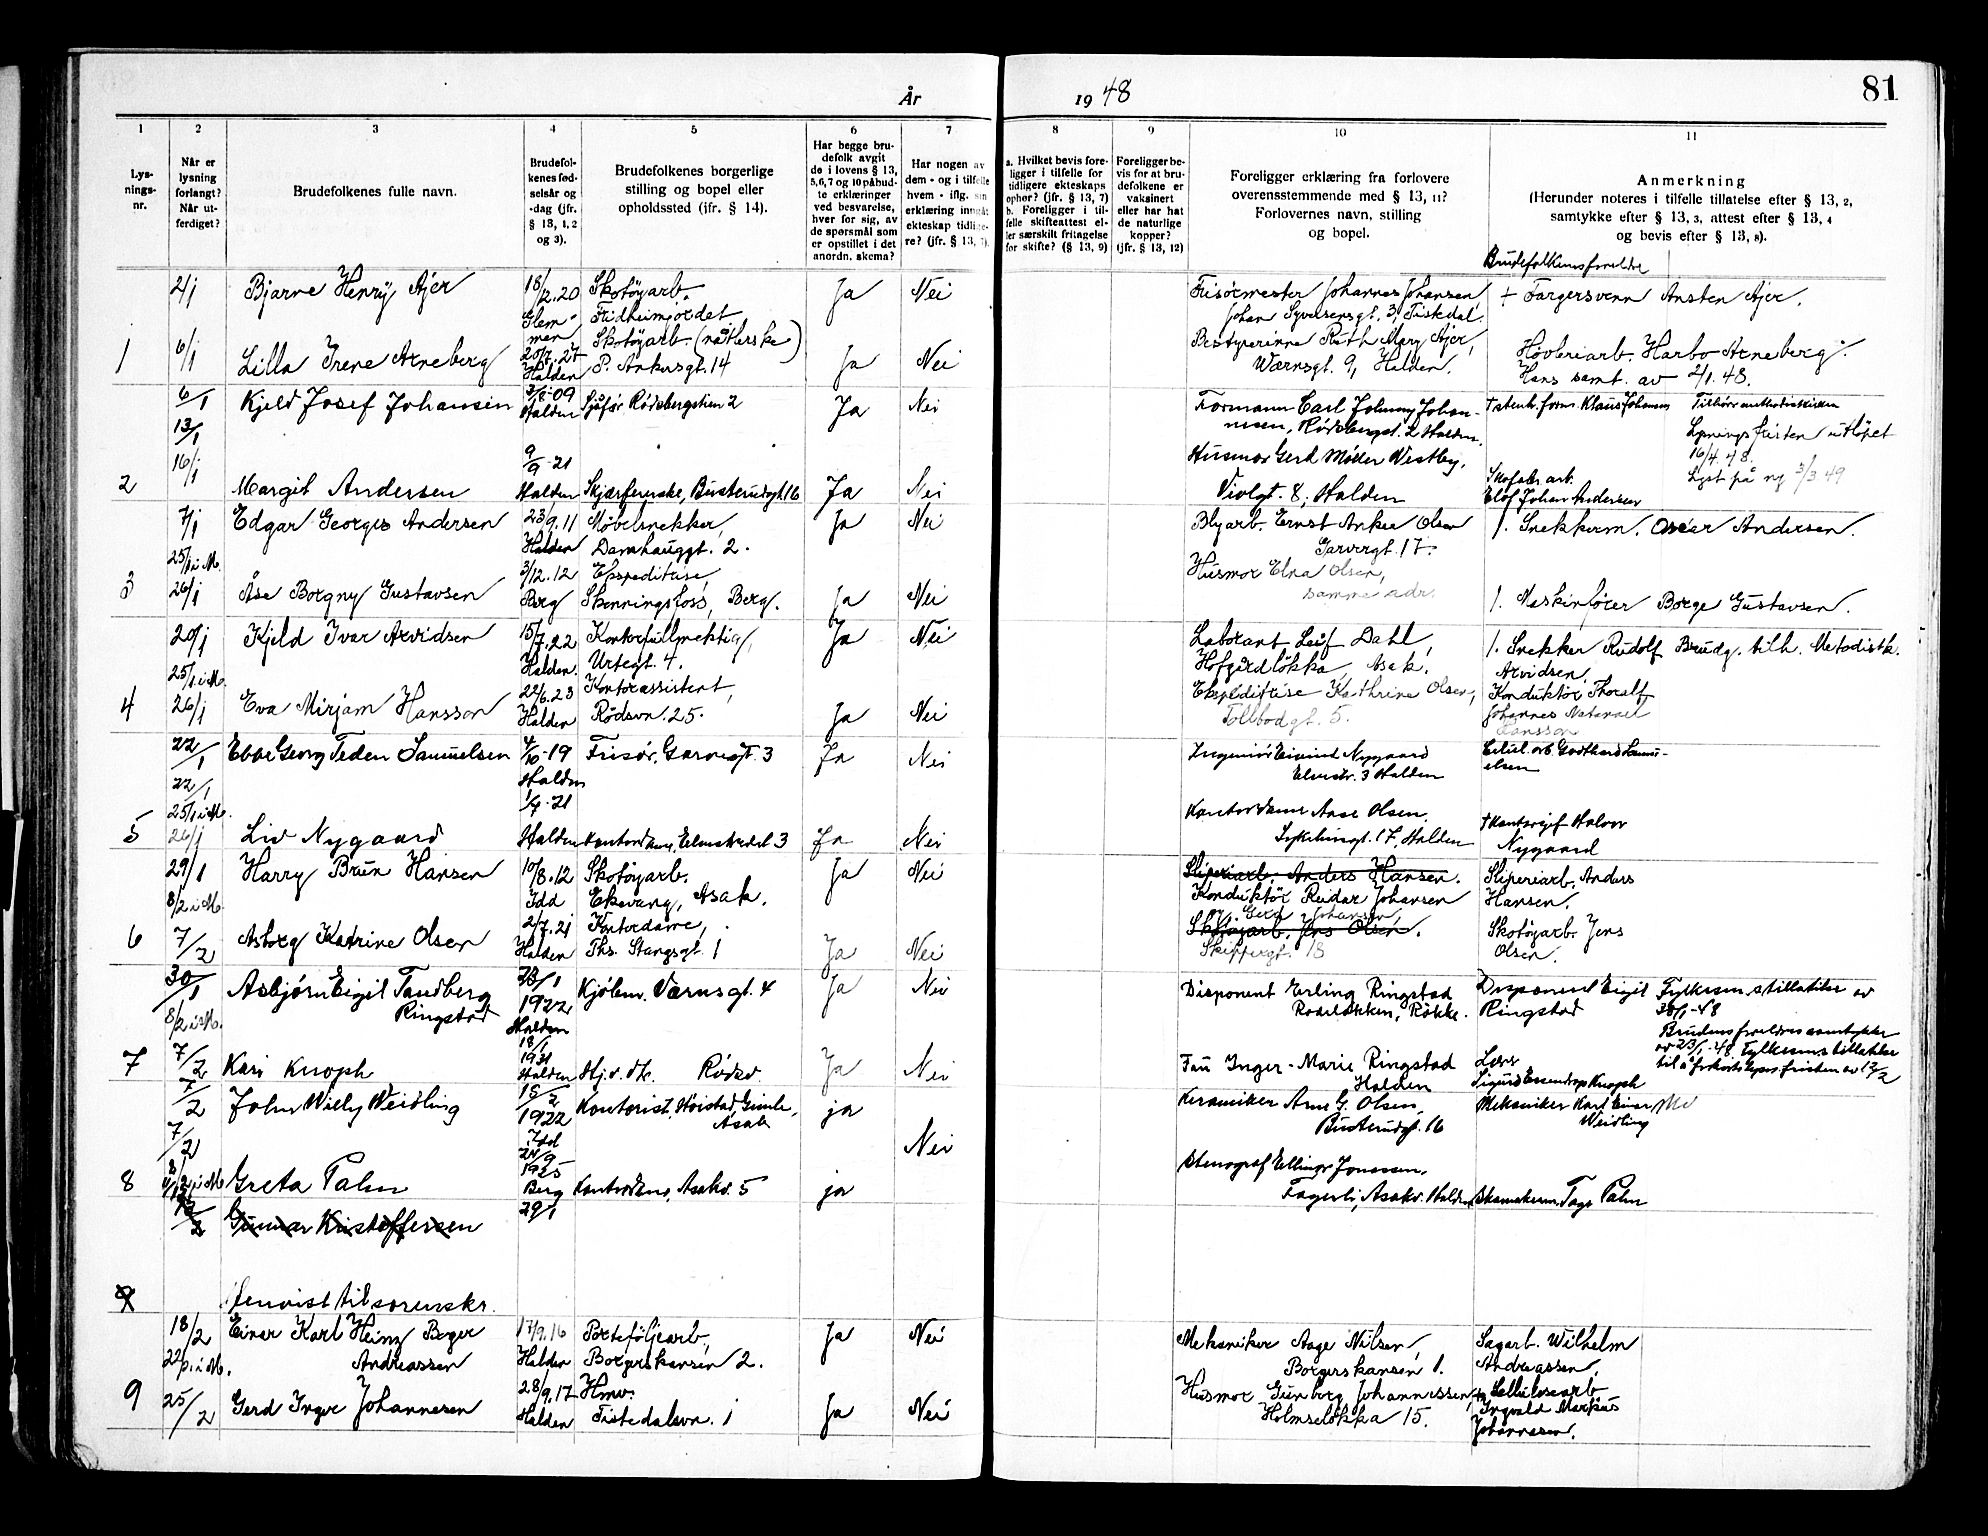 År 1948
81
1 2 3 4 5 6 7 8 9 10 11
Lys-
nings-
nr.
Når er
lysning
forlangt?
Når ut-
ferdiget?
Brudefolkenes fulle navn.
Brudefol-
kenes fød-
selsår og
-dag (jfr.
§ 13, 1, 2
og 3).
Brudefolkenes borgerlige
stilling og bopel eller
opholdssted (jfr. § 14).
Har begge bru-
defolk avgit
de i lovens § 13,
5, 6, 7 og 10 påbud-
te erklæringer
ved besvarelse,
hver for sig, av
de spørsmål som
er opstillet i det
anordn. skema?
Har nogen av
dem - og i tilfelle
hvem - iflg. sin
erklæring inngåt
ekteskap tidlige-
re? (jfr. § 13, 7).
a. Hvilket bevis fore-
ligger i tilfelle for
tidligere ekteskaps
ophør? (jfr. § 13, 7)
b. Foreligger i til-
felle skifteattest el-
ler særskilt fritagelse
for skifte? (§ 13, 9)
Foreligger be-
vis for at bru-
defolkene er
vaksinert
eller har hat
de naturlige
kopper?
(jfr. § 13, 12)
Foreligger erklæring fra forlovere
overensstemmende med § 13, 11?
Forlovernes navn, stilling
og bopel.
Anmerkning
(Herunder noteres i tilfelle tillatelse efter § 13, 2,
samtykke efter § 13, 3, attest efter § 13, 4
og bevis efter § 13, 8).
Brudefolkenes foreldre
2/1 Bjarne Henry Ajer 18/2.20 Skotøyarb. Ja Nei Frisørmester Johannes Johansen, + Fargersvenn Ansten Ajer.
Glem-
men Fridheimjordet Johan Syversensgt. 3, Tistedal.
1 6/1 Lilla Irene Arneberg 20/7.27 Skotøyarb. (nåtlerske) Ja Nei Bestyrerinne Ruth Mary Ajer, Høvleriarb. Harbo Arneberg.
Halden P. Ankersgt. 14 Wærnsgt. 9, Halden. Hans samt. av 2/1.48.
6/1 Kjeld Josef Johansen 3/8-09 Sjåfør Rødsbergstien 2 Ja Nei Formann Carl Johnny Johan- Klaus Johansen
13/1 Halden nesen, Halden.
16/1 Lysningsfristen utløpet
16/4.48.
2 Margit Andersen 9/9-21 Husmor Gerd Møller Westby, Lyst på ny 3/3 49
Halden Skjærferske, Busterudgt. 16 Ja Nei Violgt. 8, Halden Skofabr. arb.
Elof Johan Andersen
7/1 Edgar Georg Andersen 23/9.11 Møbelsnekker, Ja Nei Blyarb. Ernst Anker Olsen 1. Snekkerm. Oscar Andersen.
25/1 i M. Halden Damhauggt. 2. Garvergt. 17.
3 26/1 Åse Borgny Gustavsen 3/12.12 Ekspeditrise, Ja Nei Husmor Elna Olsen, 1. Maskinfører Borge Gustavsen.
Berg Skonningsfoss, Berg. samme adr.
20/1 Kjeld Ivar Arvidsen 15/7.22 Kontorfullmektig, Ja Nei Laborant Leif Dahl, 1. Snekker Rudolf Arvidsen. Brudg. tilh. Metodistk.
25/1 i M. Halden. Urtegt. 4. Hofgårdløkka, Asak.
4 26/1 Eva Mirjam Hansson 22/6.23 Kontorassistent, Ja Nei Ekspeditrise Kathrine Olsen, Konduktør Thoralf
Halden Rødsvn. 25. Tollbodgt. 5. Johannes Natanael
Hansson
22/1 Ebbe Georg Teden Samuelsen 4/10-19 Frisør, Garvergt. 3 Ja Nei Ingeniør Eivind Nygaard Cellul. arb Gotthard Samu-
22/1 Halden Elvestr. 3 Halden elsen
25/1 i M. 1/9.21
5 26/1 Liv Nygaard Halden Kontordame, Elvestredet 3 Ja Nei Kontordame Aase Olsen. + Kontorsjef Halvor
Sykehusgt. 17, Halden Nygaard
29/1 Harry Brun Hansen 10/8.12 Skotøyarb. Ja Nei Sliperiarb. Anders Hansen. Sliperiarb. Anders
8/2 i M. Idd Ekevang, Asak. Konduktør Reidar Johansen Hansen.
Gerd Johansen,
6 7/2 Asborg Katrine Olsen 2/7.21 Kontordame, Ja Nei Skotøyarb. Jens Olsen. Skotøyarb. Jens
Halden Ths. Stangsgt. 1 Skippergt. 18 Olsen.
30/1 Asbjørn Eigil Tandberg 23/1 Kjøbm. Værnsgt. 4 Ja Nei Disponent Erling Ringstad Disponent Eigil Fylkesm. s tillatelse av
8/2 i M. Ringstad 1922 Røkke. Ringstad 30/1-48
Halden Brudens foreldres samtykke
7 7/2 Kari Knoph 18/1 av 23/1-48. Fylkesm.s tillatelse
1931
Halden Hj.v. dtr. Rødsv. Ja Nei Frü Inger-Marie Ringstad Sigurd Essendrop Knoph
Halden
7/2 John Willy Weidling 15/2 Kontorist, Høistad, Gimle, ja Keramiker Arne G. Olsen, Mekaniker Karl Einar
7/2 1922 Asak Nei Busterudgt. 16 Weidling
Idd
24/9
8 Greta Palm 1925 Stenograf Ellinor Jonassen,
Berg Kontordame, Asakv. 5 ja Fagerli, Asakv. Halden Skomakerm. Tage Palm
12/2 Gunnar Kristoffersen 29/1
9 henvist til sorenskr.
18/2 Einar Karl Heinz Berger 17/9.16 Porteføljearb, Ja Nei Mekaniker Aage Nilsen, Sagarb. Wilhelm
22/2 i M. Andreassen Halden Borgerskansen 2. Borgerskansen 1. Andreassen.
9 25/2 Gerd Inger Johannesen 28/9.17 Hmv. Ja Nei Husmor Gunborg Johannessen, Cellulosearb
Halden Tistedalsvn. 1 Holmseløkka 15. Ingvald Markus
Johannesen.